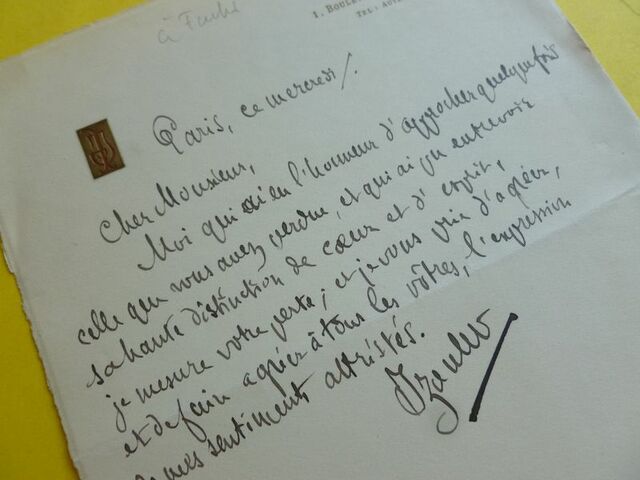 à Fauré
1, BOULE
TEL: AUTE
Paris, ce mercredi/.
Cher Monsieur,
Moi qui ai eu l'honneur d'approcher quelquefois
celle que vous avez perdue, et qui ai pu entrevoir
sa haute distinction de cœur et d'esprit,
je mesure votre perte; et je vous prie d'agréer,
et de faire agréer à tous les vôtres, l'expression
de mes sentiments attristés.